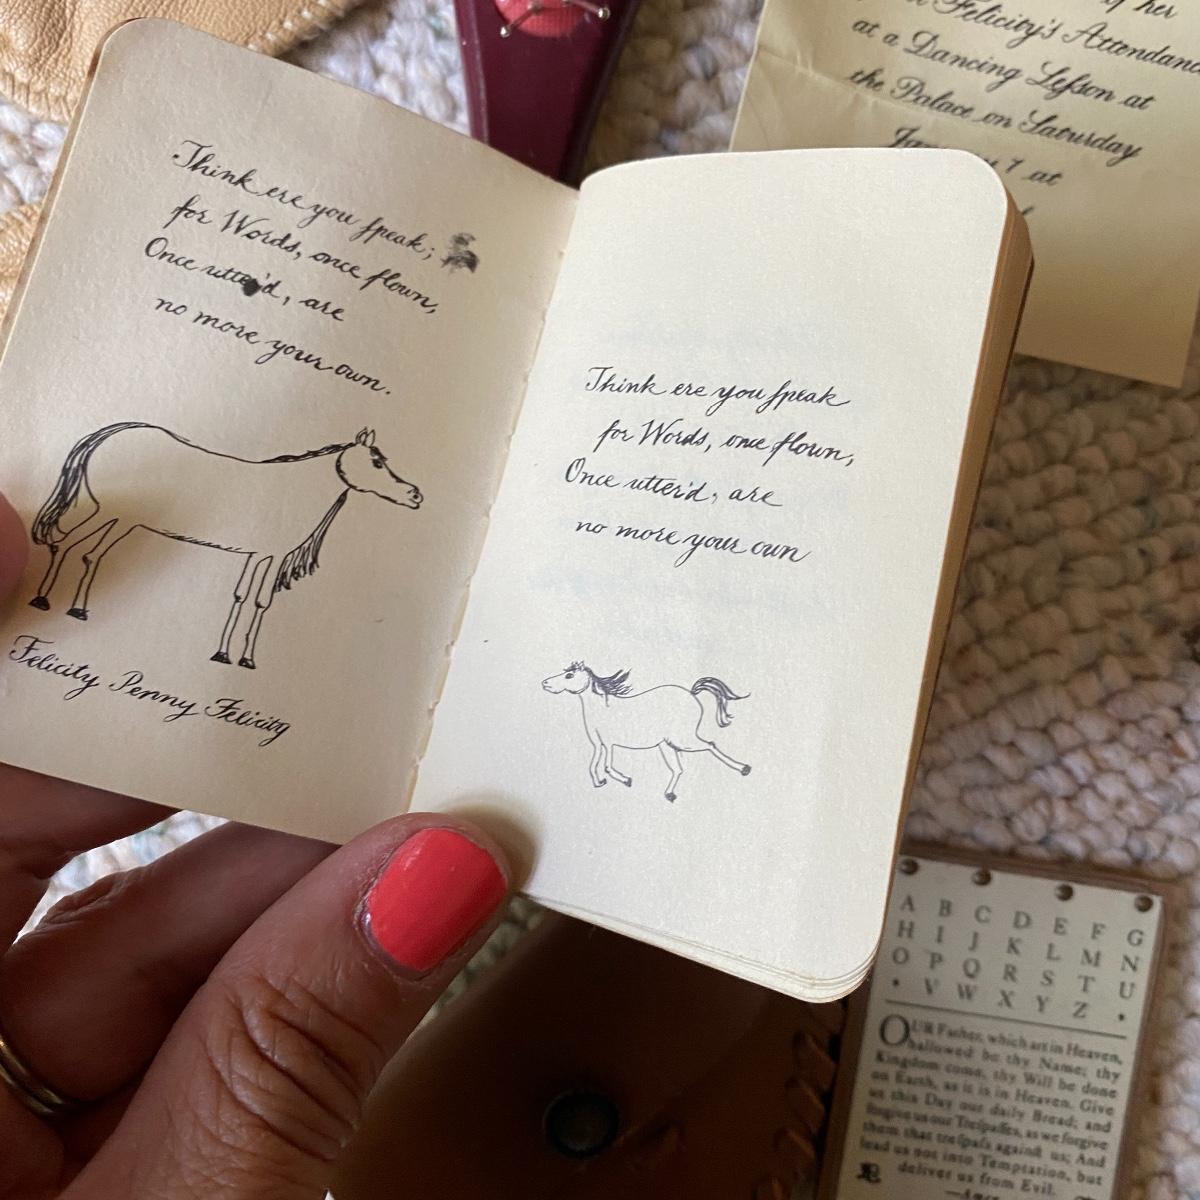 Think ere you ſpeak;
for Words, once flown,
Once utter'd, are
no more your own.
Felicity Penny Felicity
Think ere you ſpeak
for Words, once flown,
Once utter'd, are
no more your own
of her
Felicity's Attendanc
at a Dancing Leſson at
the Palace on Saturday
7 at
A B C D E F G
H I J K L M N
O P Q R S T U
• V W X Y Z •
OUR Father, which art in Heaven,
hallowed be thy Name; thy
Kingdom come, thy Will be done
on Earth, as it is in Heaven. Give
us this Day our daily Bread; and
forgive us our Treſpaſſes, as we forgive
them that treſpaſs againſt us; And
lead us not into Temptation, but
deliver us from Evil.